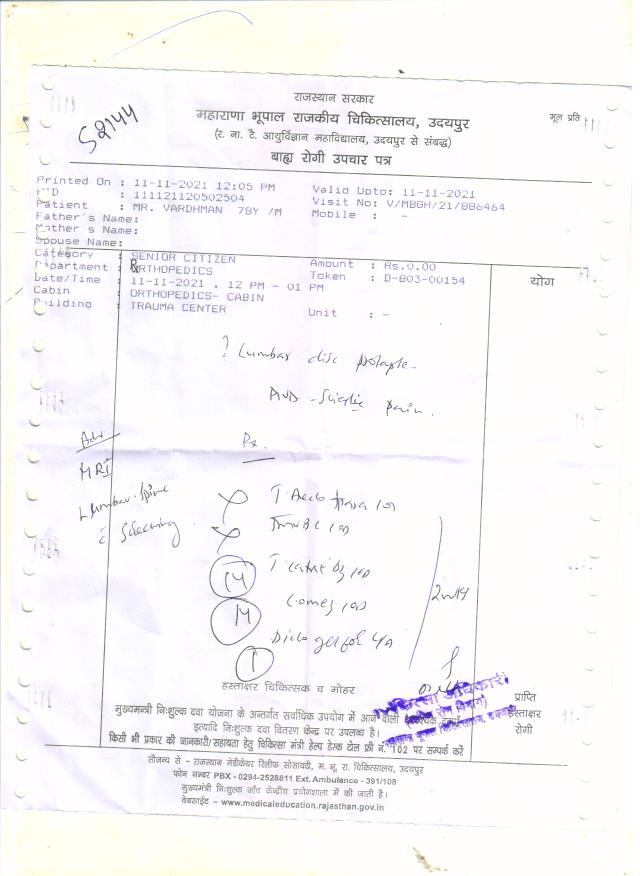 राजस्थान सरकार
महाराणा भूपाल राजकीय चिकित्सालय, उदयपुर
मूल प्रति
52144
(र. ना. टै. आयुर्विज्ञान महाविद्यालय, उदयपुर से संबद्ध)
बाह्य रोगी उपचार पत्र
Printed On : 11-11-2021 12:05 PM Valid Upto: 11-11-2021
: 111121120502504 Visit No: V/MBGH/21/886464
Patient : MR. VARDHMAN 78Y /M Mobile : -
Father's Name:
Mother's Name:
Spouse Name:
Category : SENIOR CITIZEN Amount : Rs.0.00
Department : ORTHOPEDICS Token : D-803-00154
Date/Time : 11-11-2021 . 12 PM - 01 PM
योग
Cabin : ORTHOPEDICS- CABIN
Building : TRAUMA CENTER Unit : -
? Lumbar disc prolapse
Sciatic pain.
Adv
Rx
MRI
Lumbar Spine
Screening
14
14
Diclo gel
1
हस्ताक्षर चिकित्सक व मोहर
चिकित्सा अधिकारी
प्राप्ति
हस्ताक्षर
रोगी
मुख्यमन्त्री निःशुल्क दवा योजना के अन्तर्गत सर्वाधिक उपयोग में आने वाली
इत्यादि निःशुल्क दवा वितरण केन्द्र पर उपलब्ध है।
किसी भी प्रकार की जानकारी/सहायता हेतु चिकित्सा मंत्री हेल्प डेस्क टोल फ्री नं. 102 पर सम्पर्क करें
सौजन्य से - राजस्थान मेडीकेयर रिलीफ सोसायटी, म. भू. रा. चिकित्सालय, उदयपुर
फोन नम्बर PBX - 0294-2528811 Ext. Ambulance - 391/108
मुख्यमंत्री निःशुल्क जाँच केन्द्रीय प्रयोगशाला में की जाती है।
वेबसाईट - www.medicaleducation.rajasthan.gov.in